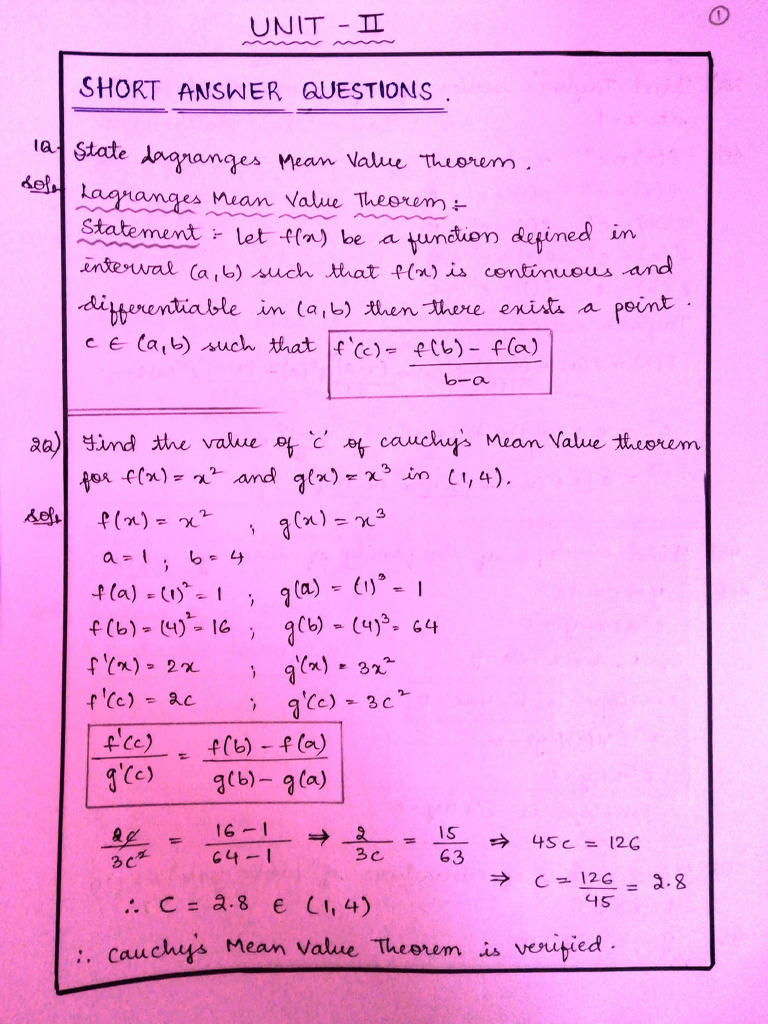 ①
UNIT - II
SHORT ANSWER QUESTIONS.
1Q. State Lagranges Mean Value Theorem.
Sol. Lagranges Mean Value Theorem :-
Statement :- let f(x) be a function defined in
interval (a,b) such that f(x) is continuous and
differentiable in (a,b) then there exists a point.
c ∈ (a,b) such that f'(c) = f(b) - f(a) / b-a
2Q) Find the value of 'c' of cauchy's Mean Value theorem
for f(x) = x² and g(x) = x³ in (1,4).
Sol. f(x) = x² ; g(x) = x³
a = 1 ; b = 4
f(a) = (1)² = 1 ; g(a) = (1)³ = 1
f(b) = (4)² = 16 ; g(b) = (4)³ = 64
f'(x) = 2x ; g'(x) = 3x²
f'(c) = 2c ; g'(c) = 3c²
f'(c) / g'(c) = f(b) - f(a) / g(b) - g(a)
2c / 3c² = 16 - 1 / 64 - 1 ⇒ 2 / 3c = 15 / 63 ⇒ 45c = 126
⇒ C = 126 / 45 = 2.8
∴ C = 2.8 ∈ (1,4)
∴ Cauchy's Mean Value Theorem is verified.